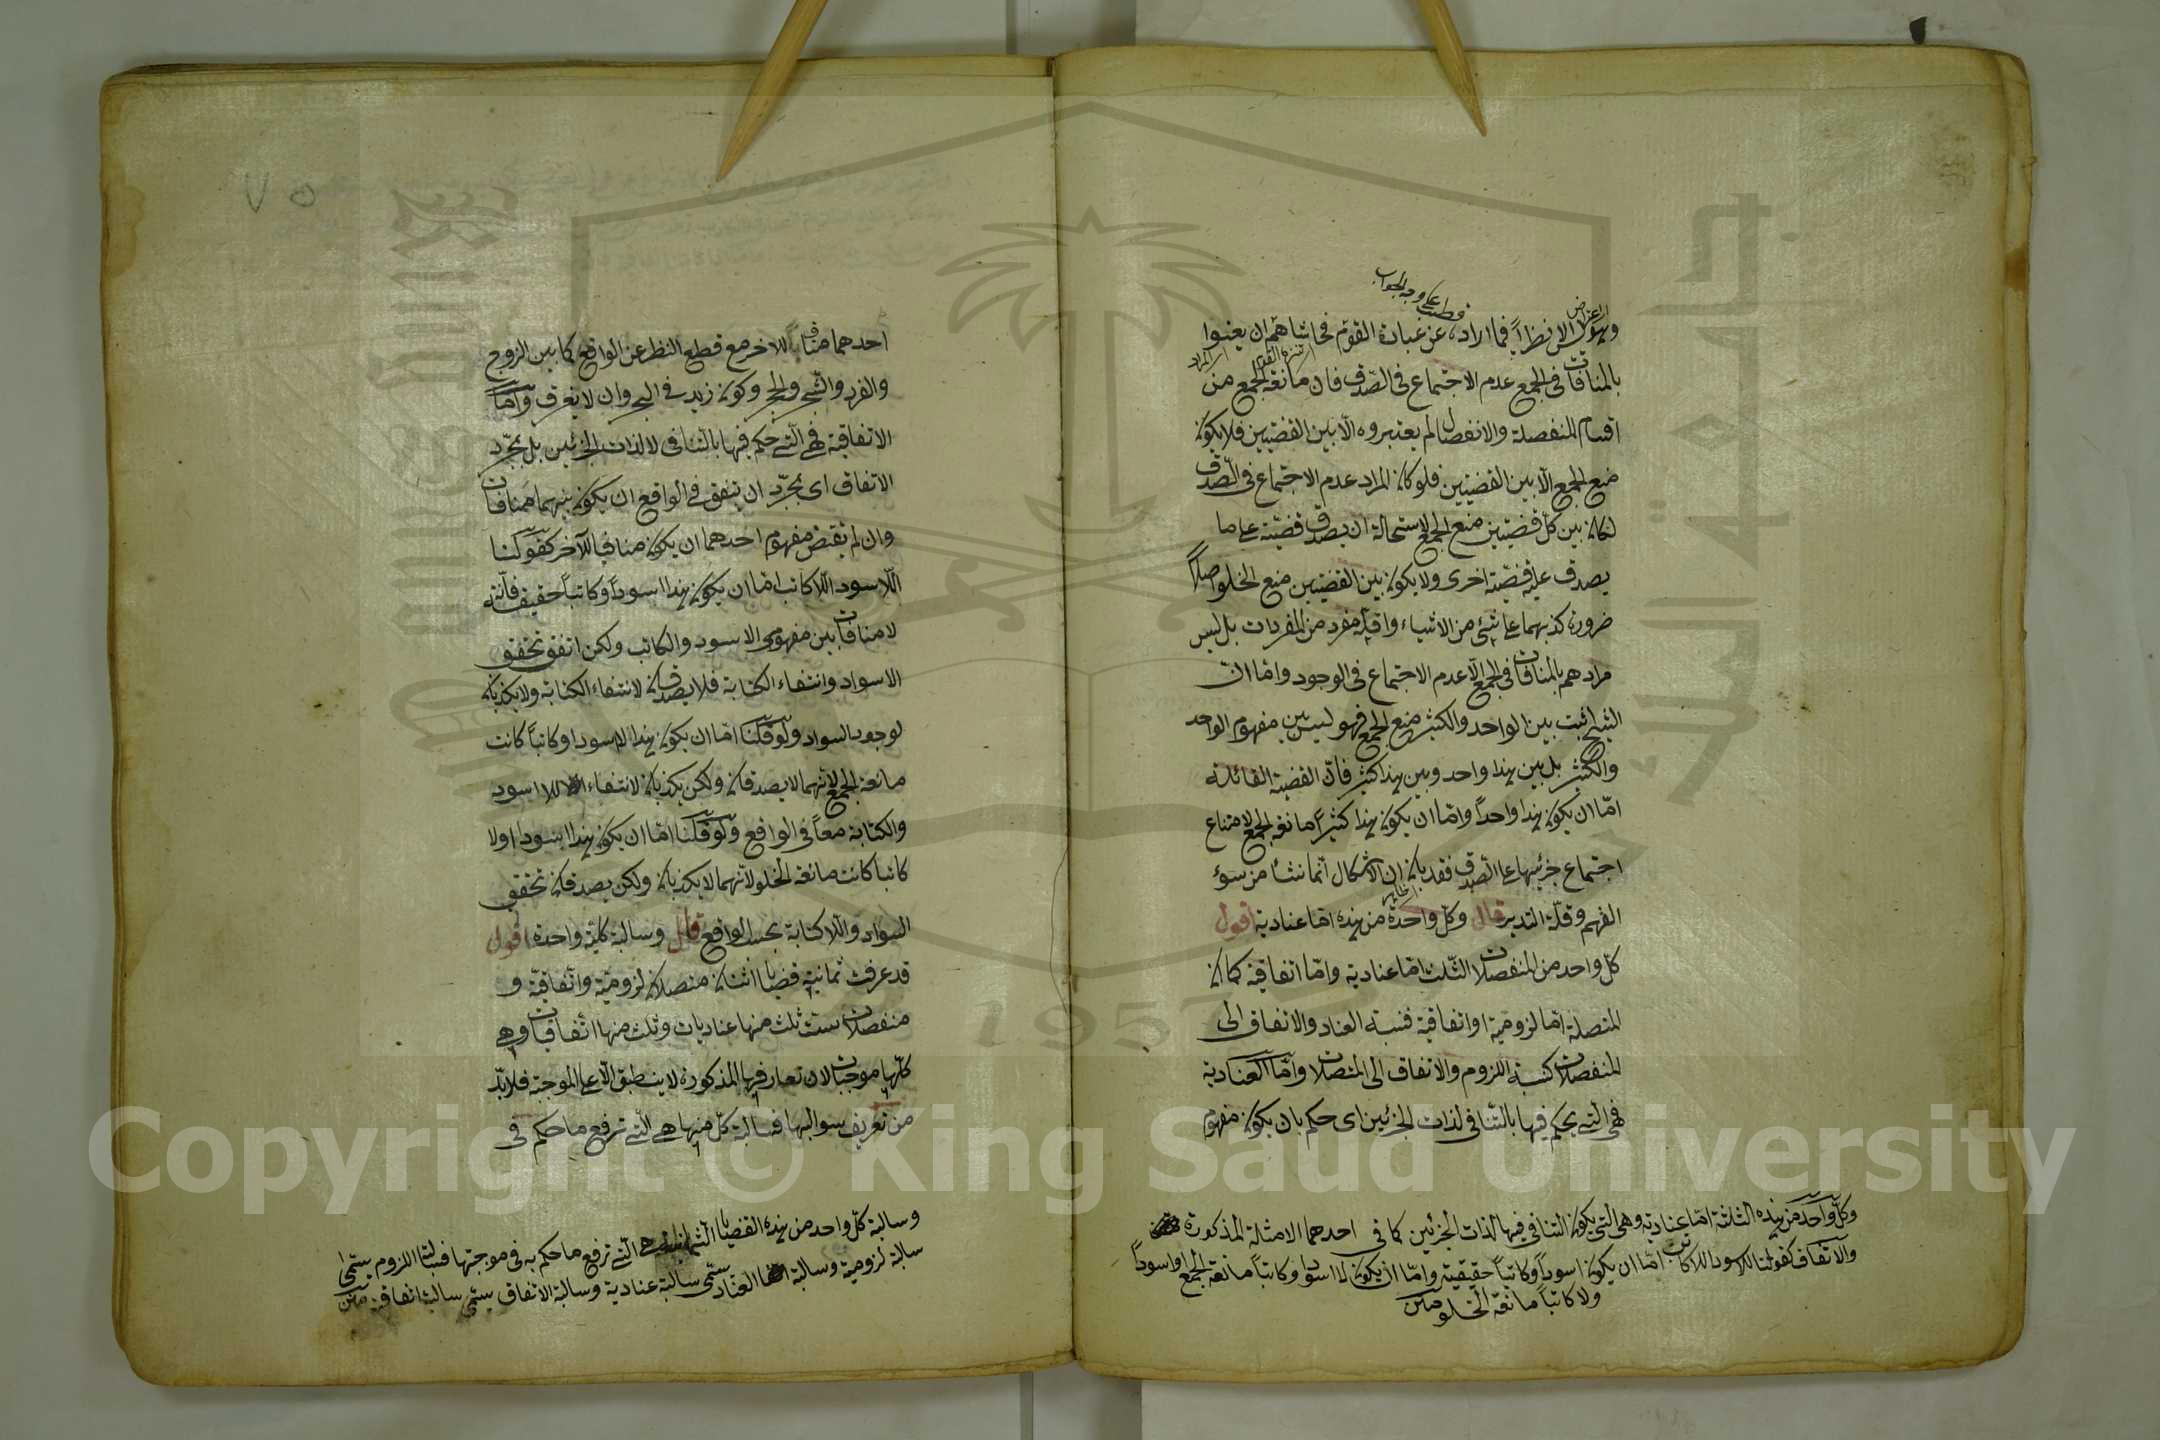 قطب على وجه الجواب
الاعتراض
وهؤلاء نظراً فيما اراده عن عبارة القوم فحاشاهم ان يعنوا
بالمنافات فى الجمع عدم الاجتماع فى الصدق فان مانعة الجمع من
اقسام المنفصلة والانفصال لم يعتبروه الّا بين القضيتين فلا يكون
منع الجمع الّا بين القضيتين فلو كان المراد عدم الاجتماع فى الصّدق
لكان بين كلّ قضيتين منع الجمع لاستحالة ان يصدق قضيّة على ما
يصدق عليه قضيّة اخرى ولا يكون بين القضيتين منع الخلو اصلاً
ضرورة كذبهما على شئ من الاشياء واقله مفرد من المفردات بل ليس
مرادهم بالمنافات فى الجمع الّا عدم الاجتماع فى الوجود وامّا انّ
الشيخ اثبت بين الواحد والكثير منع الجمع فهو ليس بين مفهوم الواحد
والكثير بل بين هذا واحد وبين هذا كثير فانّ القضية القائلة
امّا ان يكون هذا واحداً وامّا ان يكون هذا كثيراً مانعة الجمع لامتناع
اجتماع جزئيها على الصّدق فقد بان ان الاشكال انّما نشأ من سوء
الفهم وقلّة التدبر قال وكلّ واحدة من هذه امّا عنادية اقول
كلّ واحد من المنفصلات الثّلث امّا عنادية وامّا اتفاقية كما انّ
المتصلة امّا لزوميّة او اتفاقية فنسبة العناد والاتفاق الى
المنفصلات كنسبة اللزوم والاتفاق الى المتصلات وامّا العنادية
فهى الّتى يحكم فيها بالتّنافى لذات الجزئين اى حكم بان يكون مفهوم
وكلّ واحد من هذه الثلثة امّا عنادية وهى التى يكون التنافى فيها لذات الجزئين كما فى احدهما الامثلة المذكورة
والاتفاق كقولنا للاسود اللاكاتب امّا ان يكون اسوداً وكاتباً حقيقية وامّا ان يكون لا اسود او كاتباً مانعة الجمع او اسوداً
ولا كاتباً مانعة الخلو متن
٧٥
احدهما منافياً للاخر مع قطع النظر عن الواقع كما بين الزوج
والفرد والشّجر والحجر وكون زيد فى البحر وان لا يغرق وامّا
الاتفاقية فهى الّتى حكم فيها بالتّنافى لا لذات الجزئين بل بمجرّد
الاتفاق اى بمجرّد ان يتفق فى الواقع ان يكون بينهما منافات
وان لم يقتض مفهوم احدهما ان يكون منافياً للآخر كقولنا
اللاسود اللاكاتب امّا ان يكون هذا اسوداً وكاتباً حقيقية فانّه
لا منافات بين مفهومى الاسود والكاتب ولكن اتفق تحقق
الاسواد وانتفاء الكتابة فلا يصدقان لانتفاء الكتابة ولا يكذبان
لوجود السواد ولو قلنا امّا ان يكون هذا لا اسود او كاتباً كانت
مانعة الجمع لانّهما لا يصدقان ولكن يكذبان لانتفاء اللا اسود
والكتابة معاً فى الواقع ولو قلنا امّا ان يكون هذا اسود او لا
كاتبا كانت مانعة الخلو لانّهما لا يكذبان ولكن يصدقان تحقق
السّواد واللاكتابة بحسب الواقع قال وسالبة كليّة واحدة اقول
قد عرفت ثمانية قضايا اثنان متصلان لزوميّة واتّفاقيّة و
منفصلات ستّ ثلث منها عناديات وثلث منها اتّفاقيات وهى
كلّها موجبات لان تعاريفها المذكورة لا ينطبق الّا على الموجبة فلا بدّ
من تعريف سوالبها فسالبة كلّ منها هى الّتى ترفع ما حكم فى
وسالبة كلّ واحد من هذه القضايا الثمانية هى الّتى ترفع ما حكم به فى موجبتها فسالبة اللزوم يسمّى
سالبة لزومية وسالبة العناد يسمّى سالبة عنادية وسالبة الاتفاق يسمّى سالبة اتفاقية متن
Copyright © King Saud University
1957